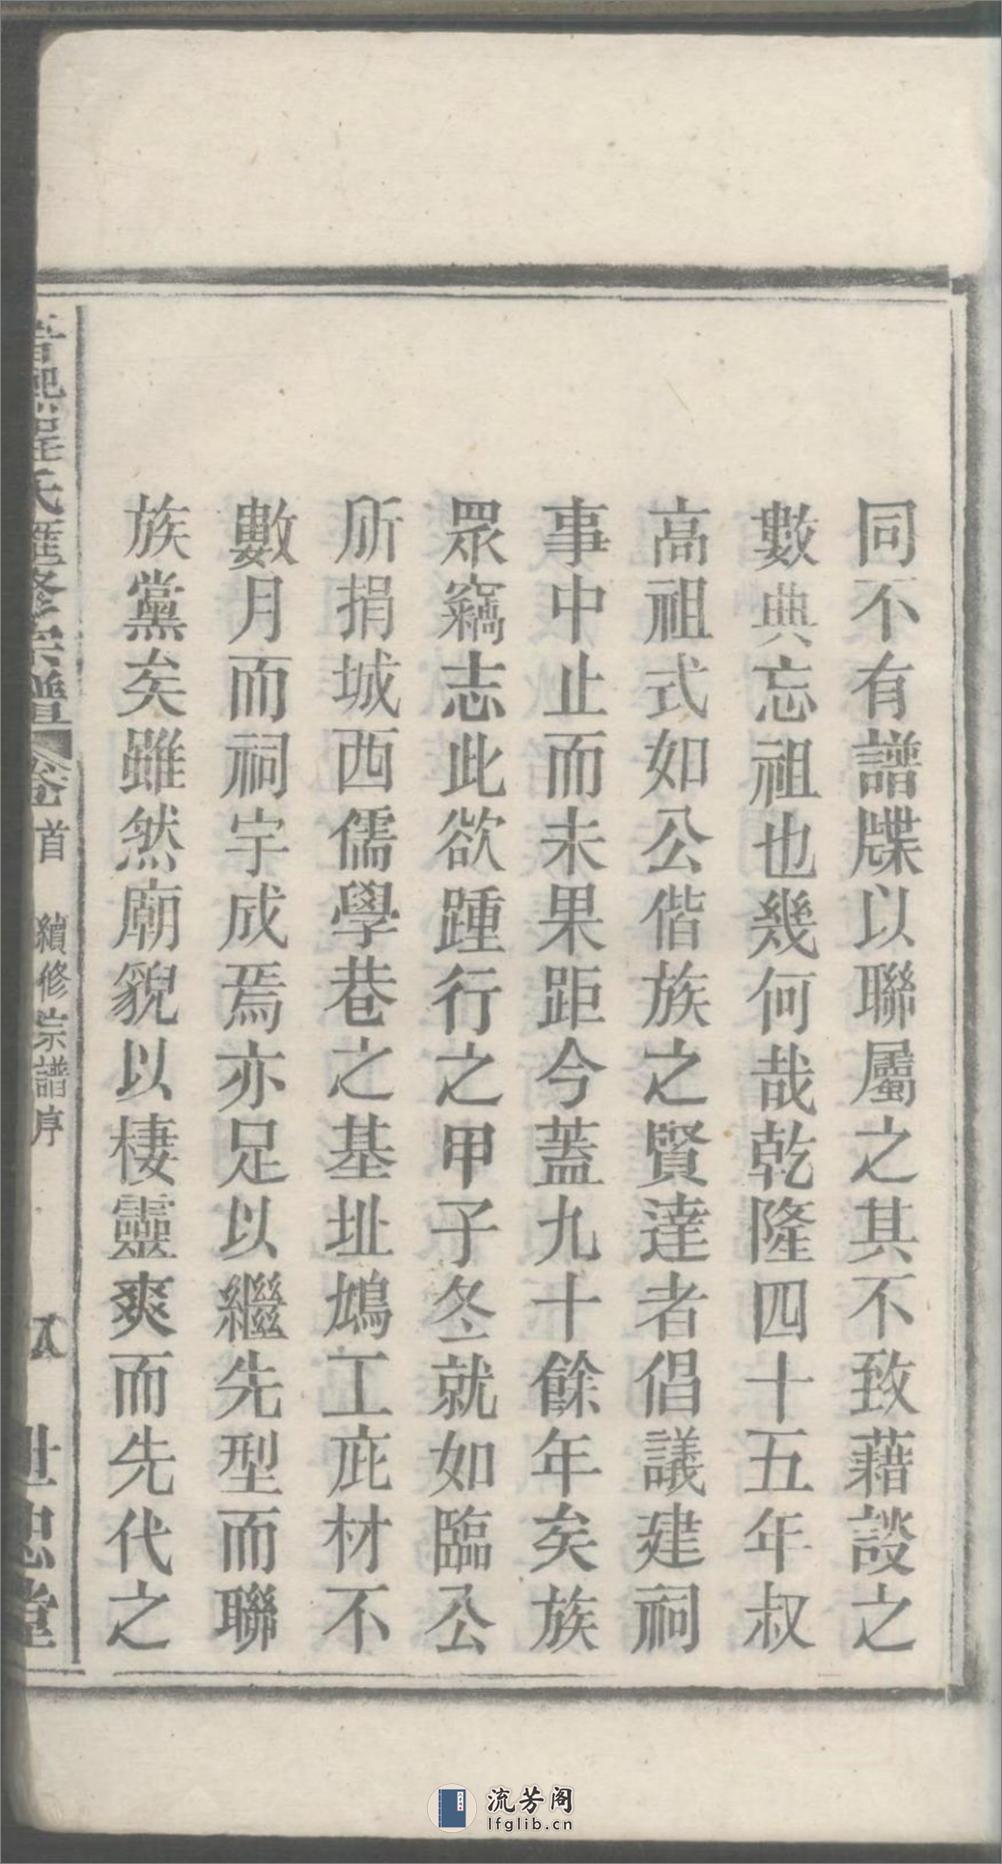 同不有譜牒以聯屬之其不致藉談之
數典忘祖也幾何哉乾隆四十五年叔
高祖式如公偕族之賢達者倡議建祠
事中止而未果距今蓋九十餘年矣族
眾竊志此欲踵行之甲子冬就如臨公
所捐城西儒學巷之基址鳩工庇材不
數月而祠宇成焉亦足以繼先型而聯
族黨矣雖然廟貌以棲靈爽而先代之
程氏匯修宗譜 卷首 續修宗譜序 八 世忠堂
流芳阁
lfglib.cn